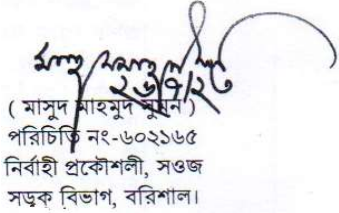 ২৬/৭/২
( মাসুদ মাহমুদ সুমন )
পরিচিতি নং-৬০২১৬৫
নির্বাহী প্রকৌশলী, সওজ
সড়ক বিভাগ, বরিশাল।